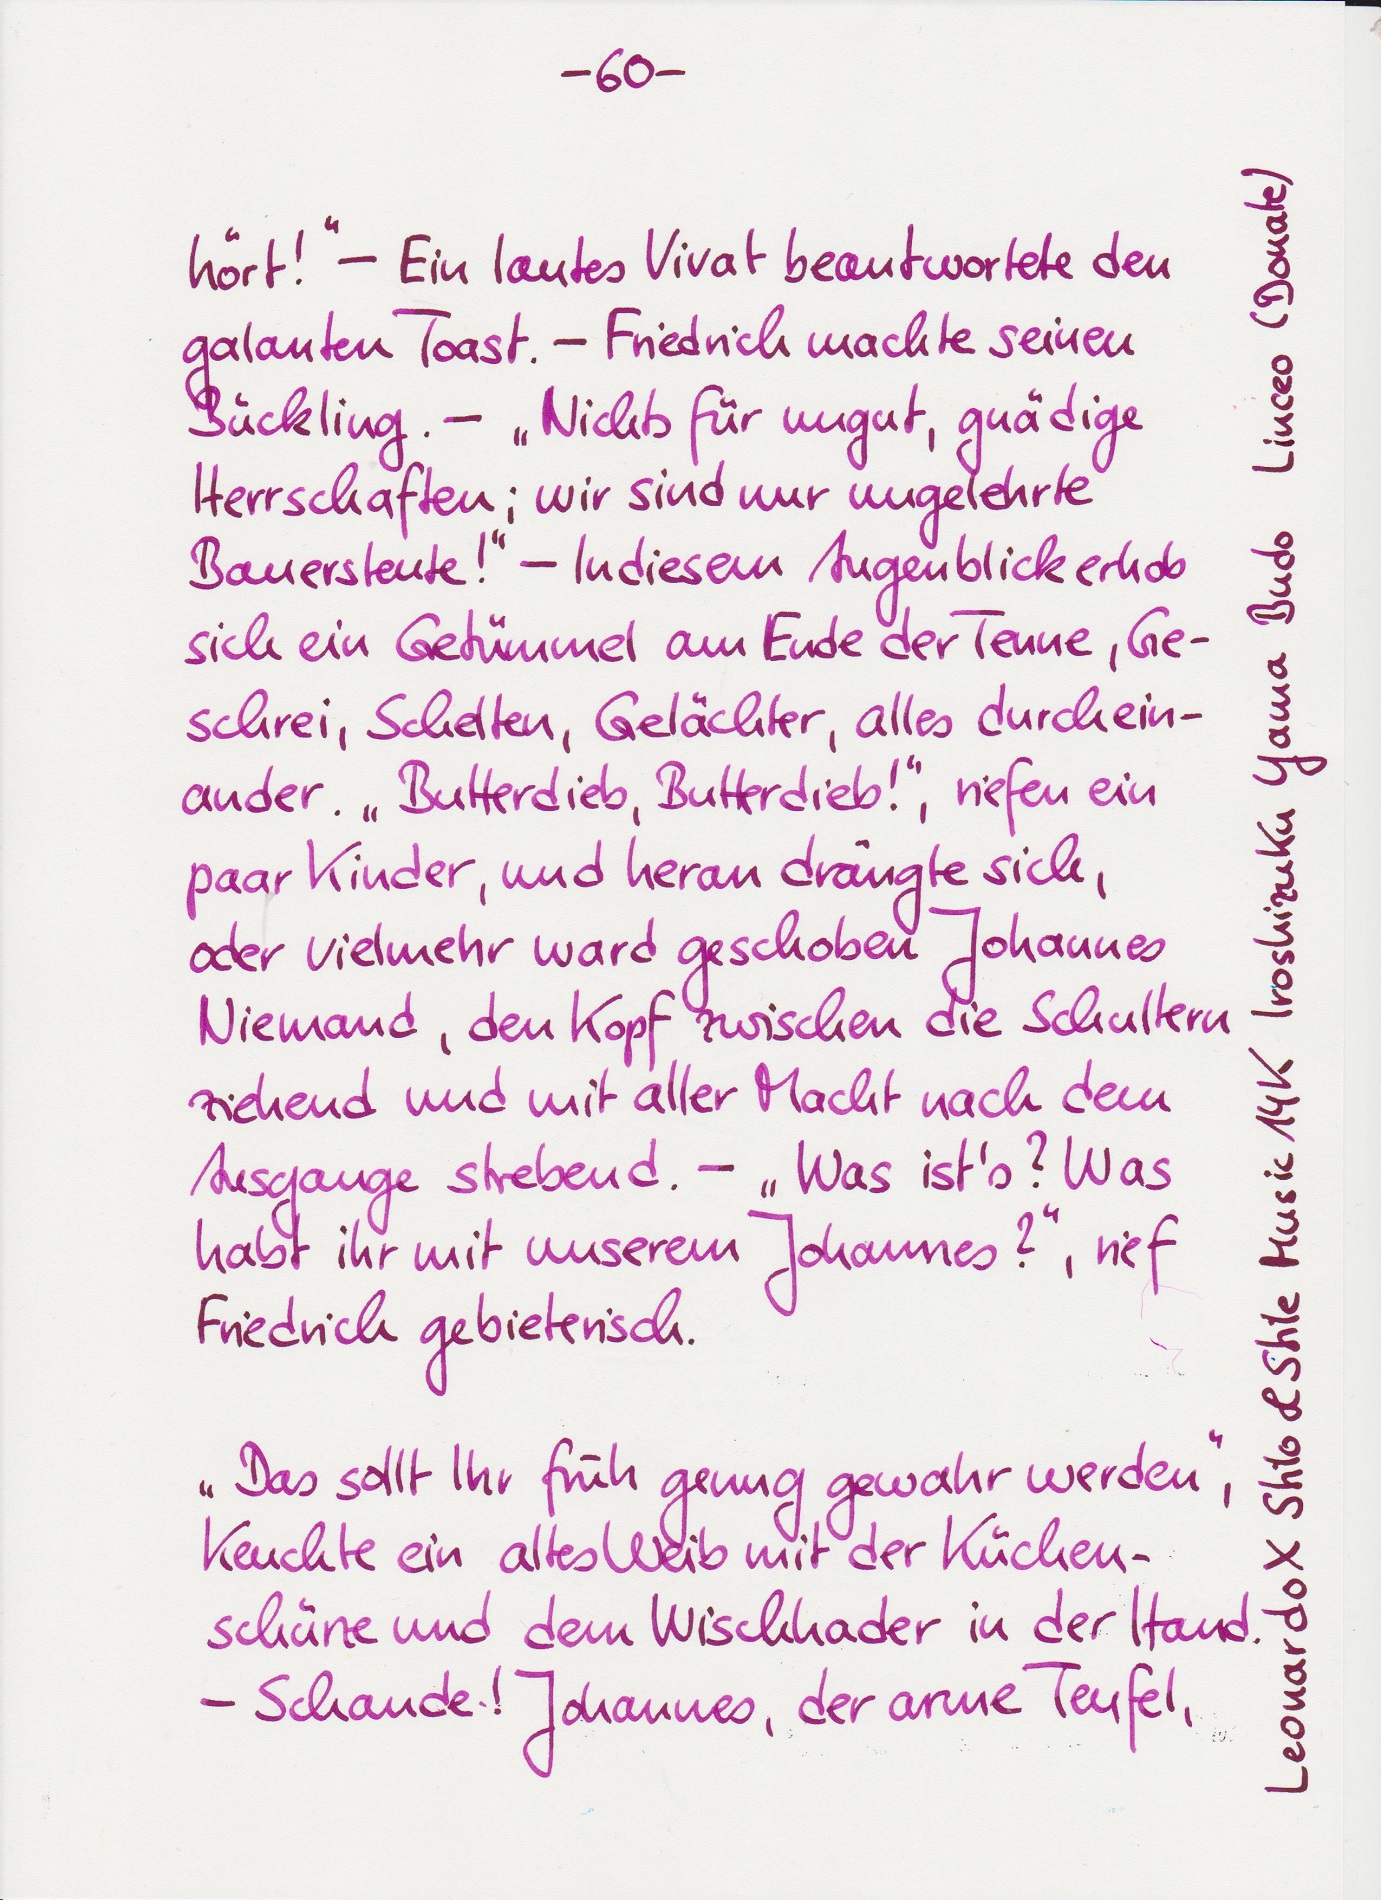 -60-
hört!“ – Ein lautes Vivat beantwortete den
galanten Toast. – Friedrich machte seinen
Bückling. – „Nichts für ungut, gnädige
Herrschaften; wir sind nur ungelehrte
Bauersleute!“ – In diesem Augenblick erhob
sich ein Getümmel am Ende der Tenne, Ge-
schrei, Schelten, Gelächter, alles durchein-
ander. „Butterdieb, Butterdieb!“, riefen ein
paar Kinder, und heran drängte sich,
oder vielmehr ward geschoben Johannes
Niemand, den Kopf zwischen die Schultern
ziehend und mit aller Macht nach dem
Ausgange strebend. – „Was ist's? Was
habt ihr mit unserem Johannes?“, rief
Friedrich gebieterisch.
„Das sollt Ihr früh genug gewahr werden“,
keuchte ein altes Weib mit der Küchen-
schürze und dem Wischhader in der Hand.
– Schande! Johannes, der arme Teufel,
Leonardo X Shito & Shite Music 14K Iroshizuku Yama Budo Linceo (Donate)